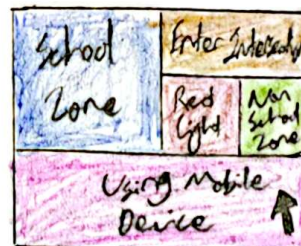 School
Zone
Enter Intersect
Red
Light
Non
School
Zone
Using Mobile
Device